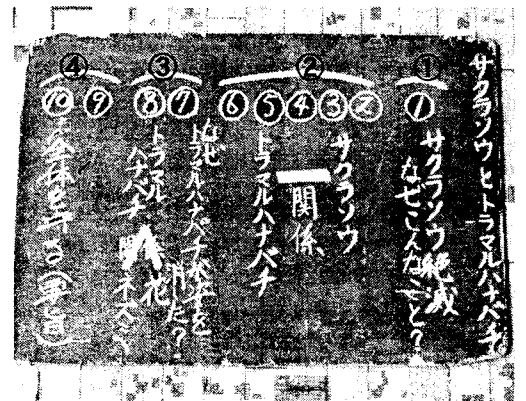 サクラソウとトラマルハナバチ
①
①
サクラソウ絶滅
なぜこんなこと?
②
② ③ ④ ⑤ ⑥
サクラソウ
関係
トラマルハナバチ
③
⑦ ⑧
なぜ
トラマルハナバチが姿を
消した?
トラマル
ハナバチ
花
ネズミ
④
⑨ ⑩